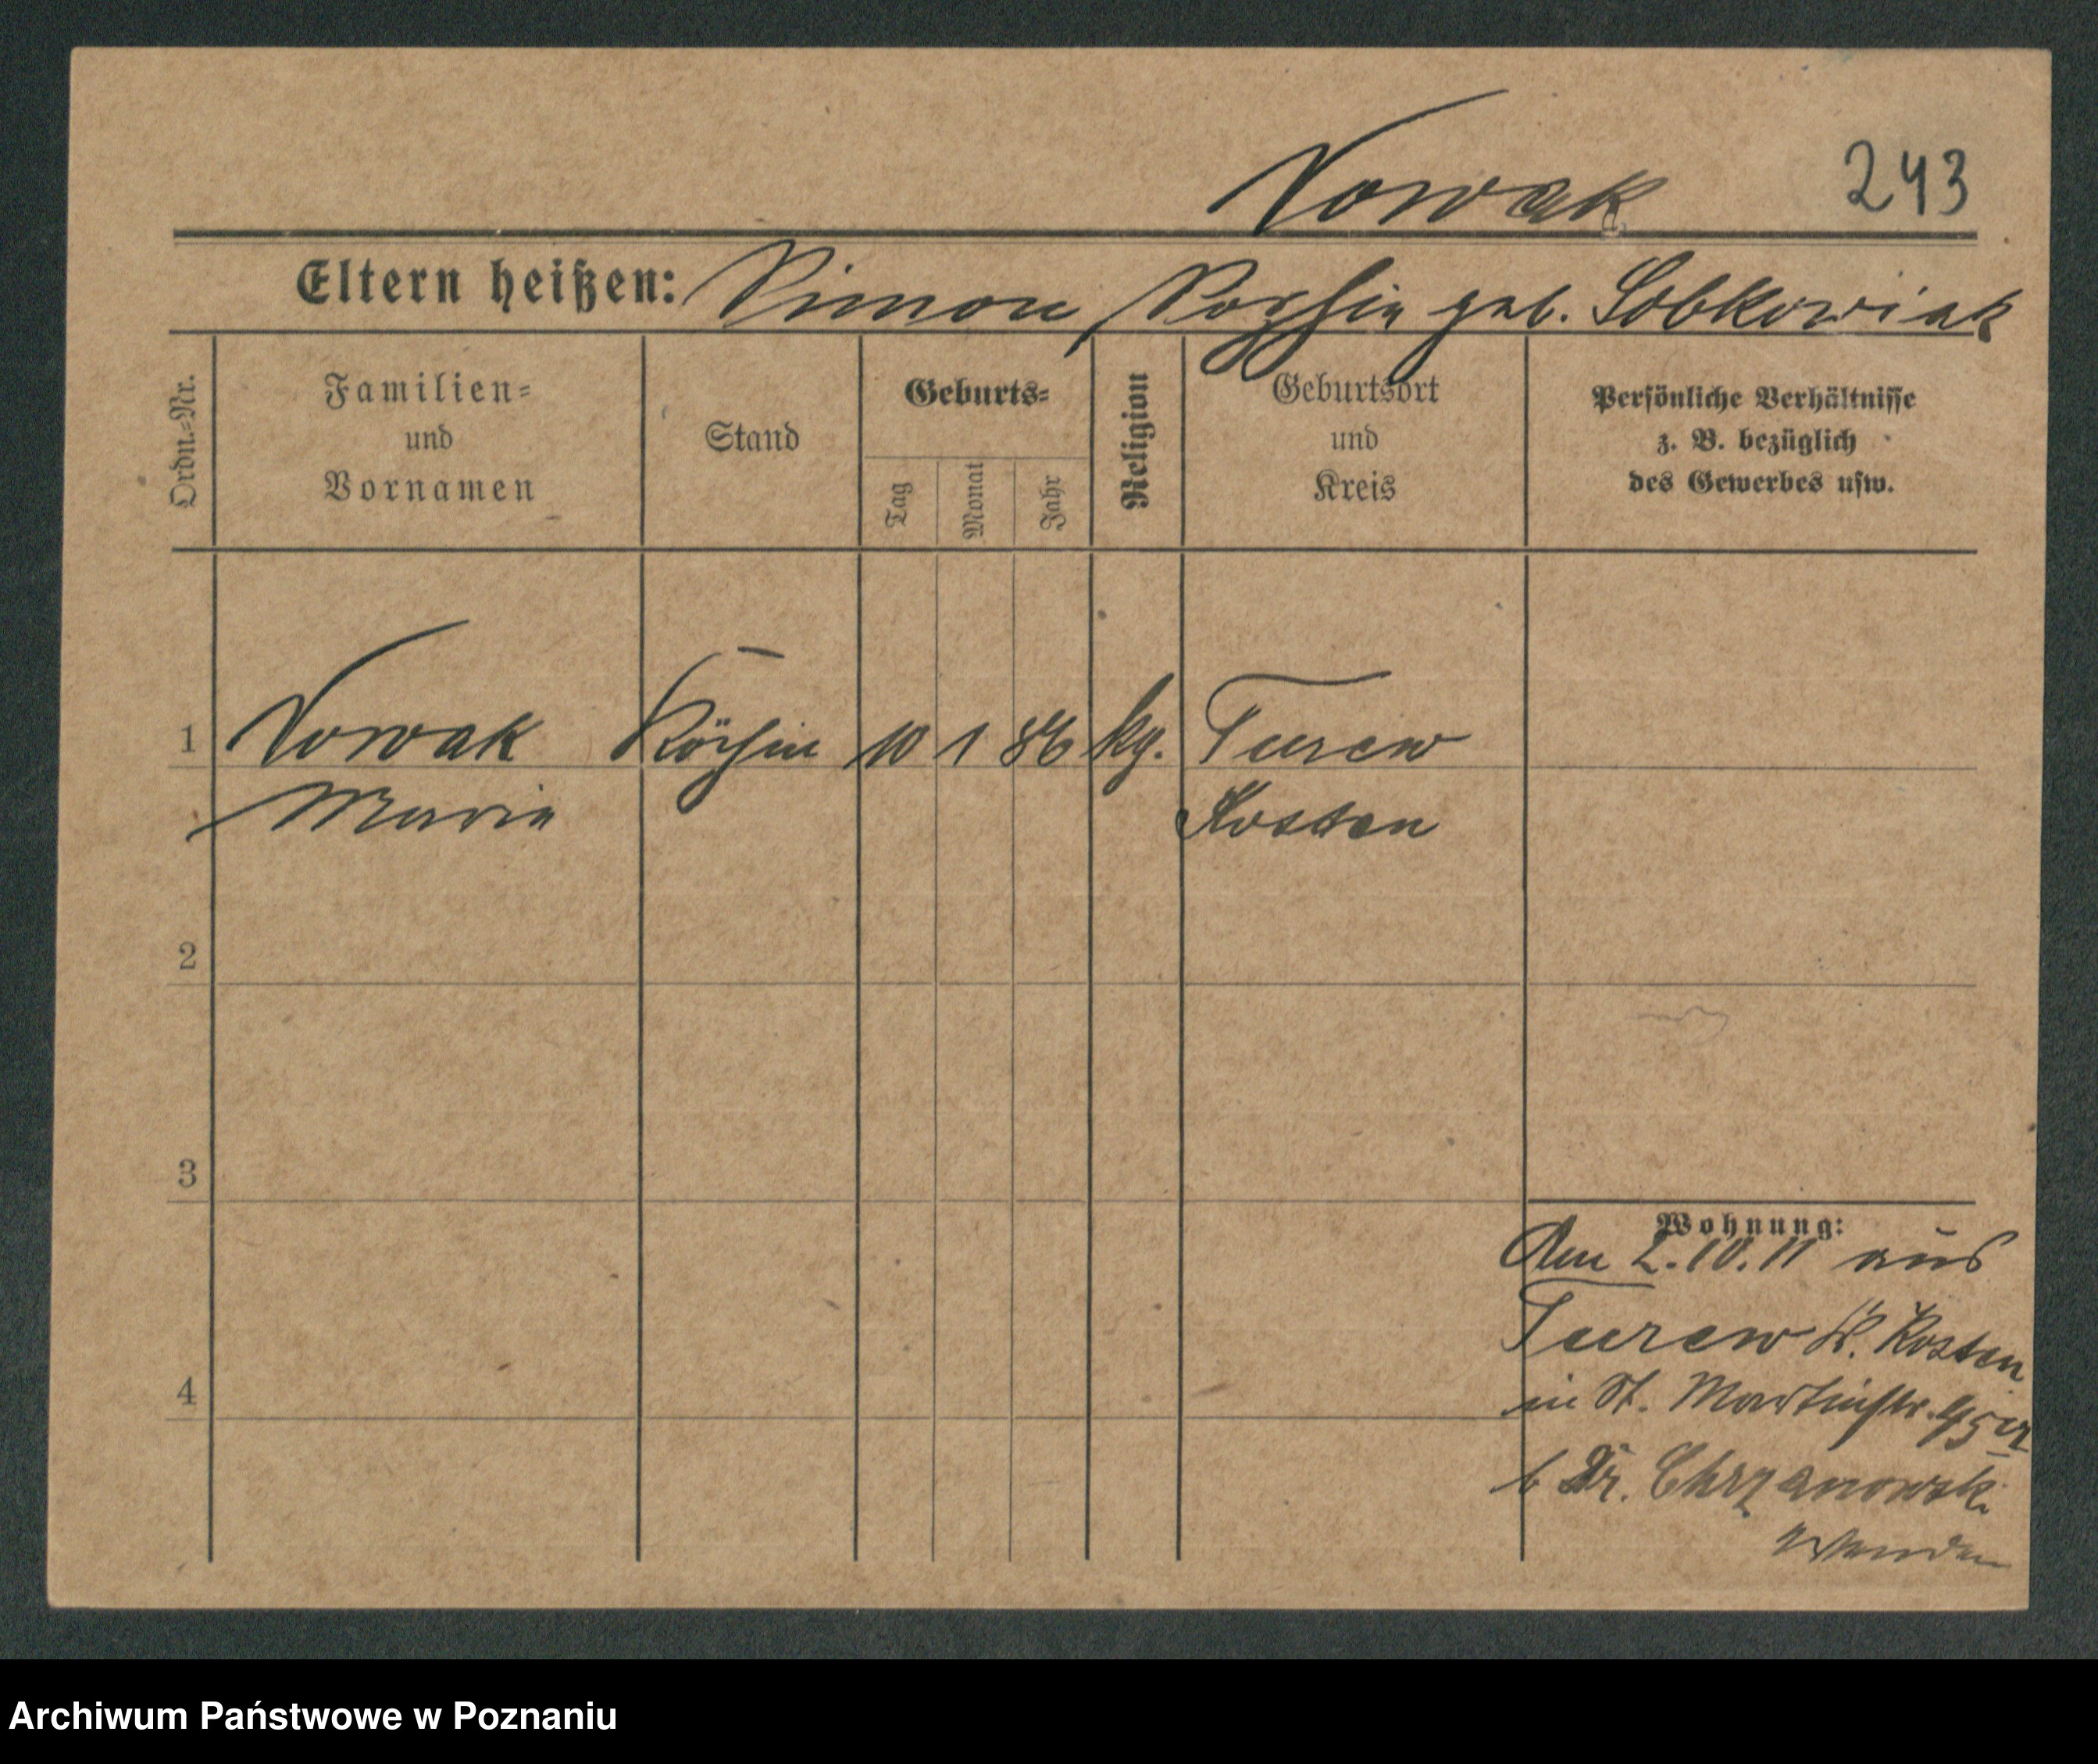 Nowak 243
Eltern heißen: Simon Sophie geb. Sobkowiak
Ordn.=Nr.
Familien=
und
Vornamen
Stand
Geburts=
Tag
Monat
Jahr
Religion
Geburtsort
und
Kreis
Persönliche Verhältnisse
z. B. bezüglich
des Gewerbes usw.
1 Nowak Köchin 10 1 86 kg. Turew
Maria Kosten
2
3
4
Wohnung:
Am 2.10.11 aus
Turew K. Kosten
in St. Martinstr. 45
b Dr. Chrzanowski
Wenden
Archiwum Państwowe w Poznaniu